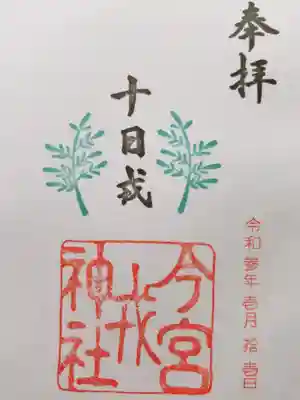 奉拝
十日戎
今宮
戎
神社
令和參年壱月拾壱日